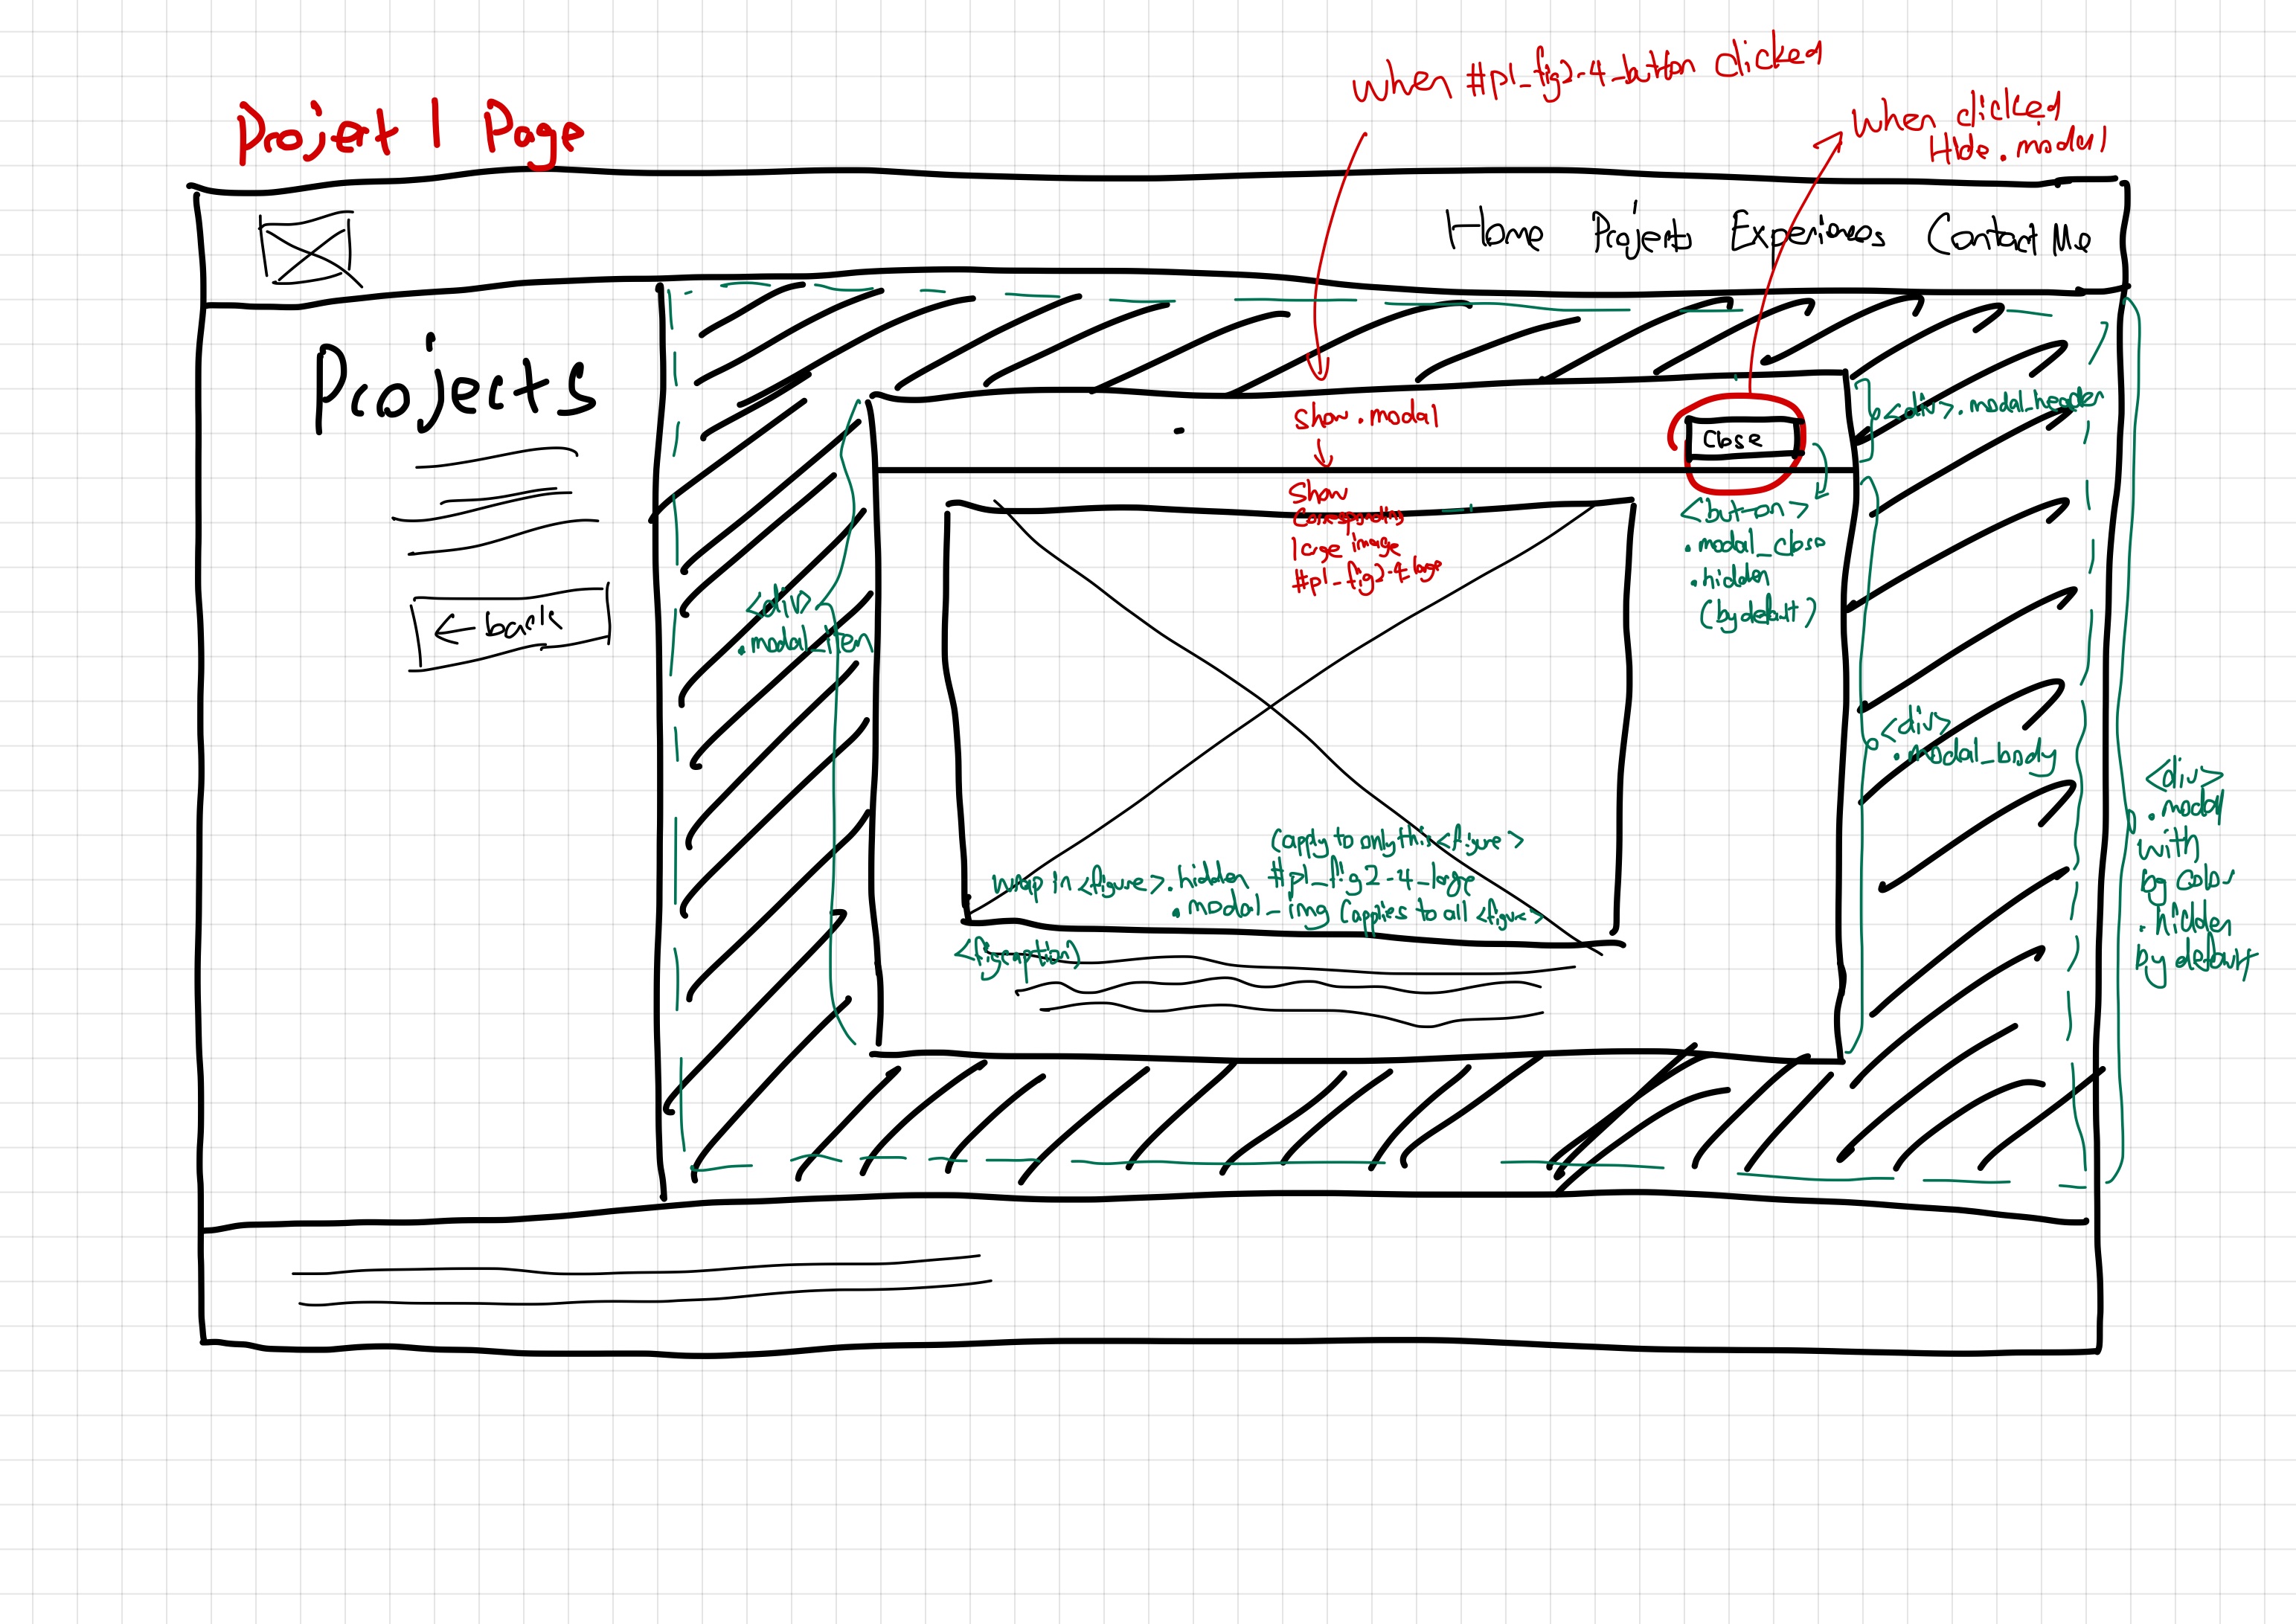 when #p1_fig2-4_button clicked
when clicked
Hide .modal
Projet 1 Page
Home Projects Experiences Contact Me
Projects
← back
show .modal
Close
<div>.modal_header
Show
Corresponding
large image
#p1_fig2-4_large
<button>
.modal_close
.hidden
(by default)
<div>
.modal_item
<div>
.modal_body
<div>
.modal
with
bg color
.hidden
by default
(apply to only this <figure>
wrap in <figure>.hidden #p1_fig2-4_large
.modal_img (applies to all <figure>
<figcaption>